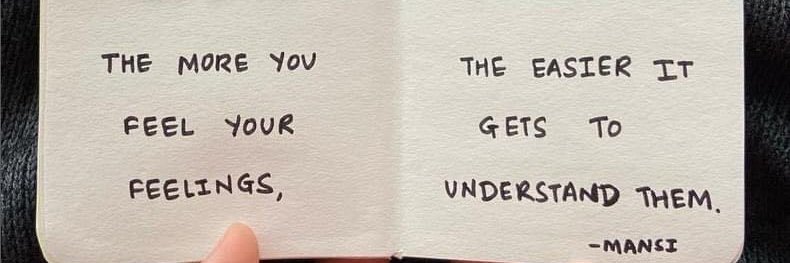 THE MORE YOU
FEEL YOUR
FEELINGS,
THE EASIER IT
GETS TO
UNDERSTAND THEM.
-MANSI